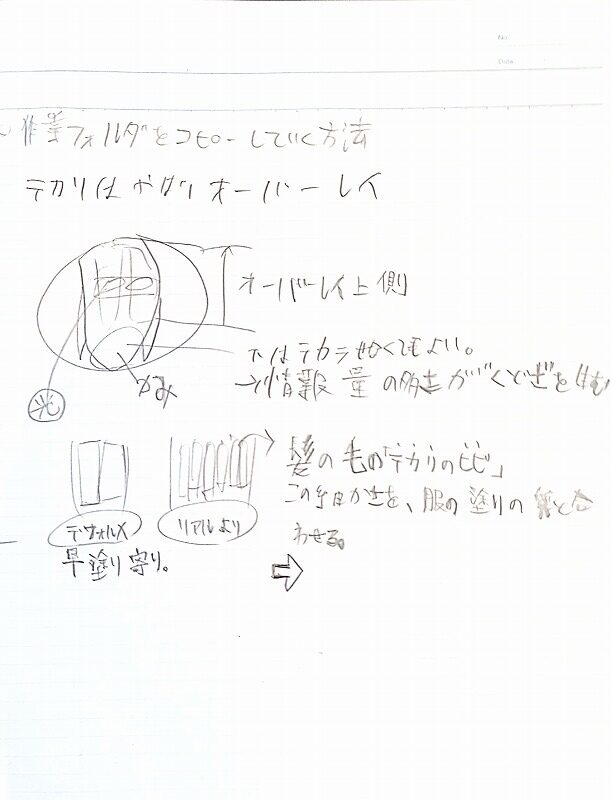 No.
Date
作業フォルダをコピーしていく方法
テカリはやはりオーバーレイ
オーバーレイ上側
下はテカラせなくてもよい。
→情報量の多さが"くどさ"を生む
かみ
光
髪の毛の「テカリのビビ」
この細かさを、服の塗りの と合
わせる。
デフォルメ
リアルより
早塗り寄り。